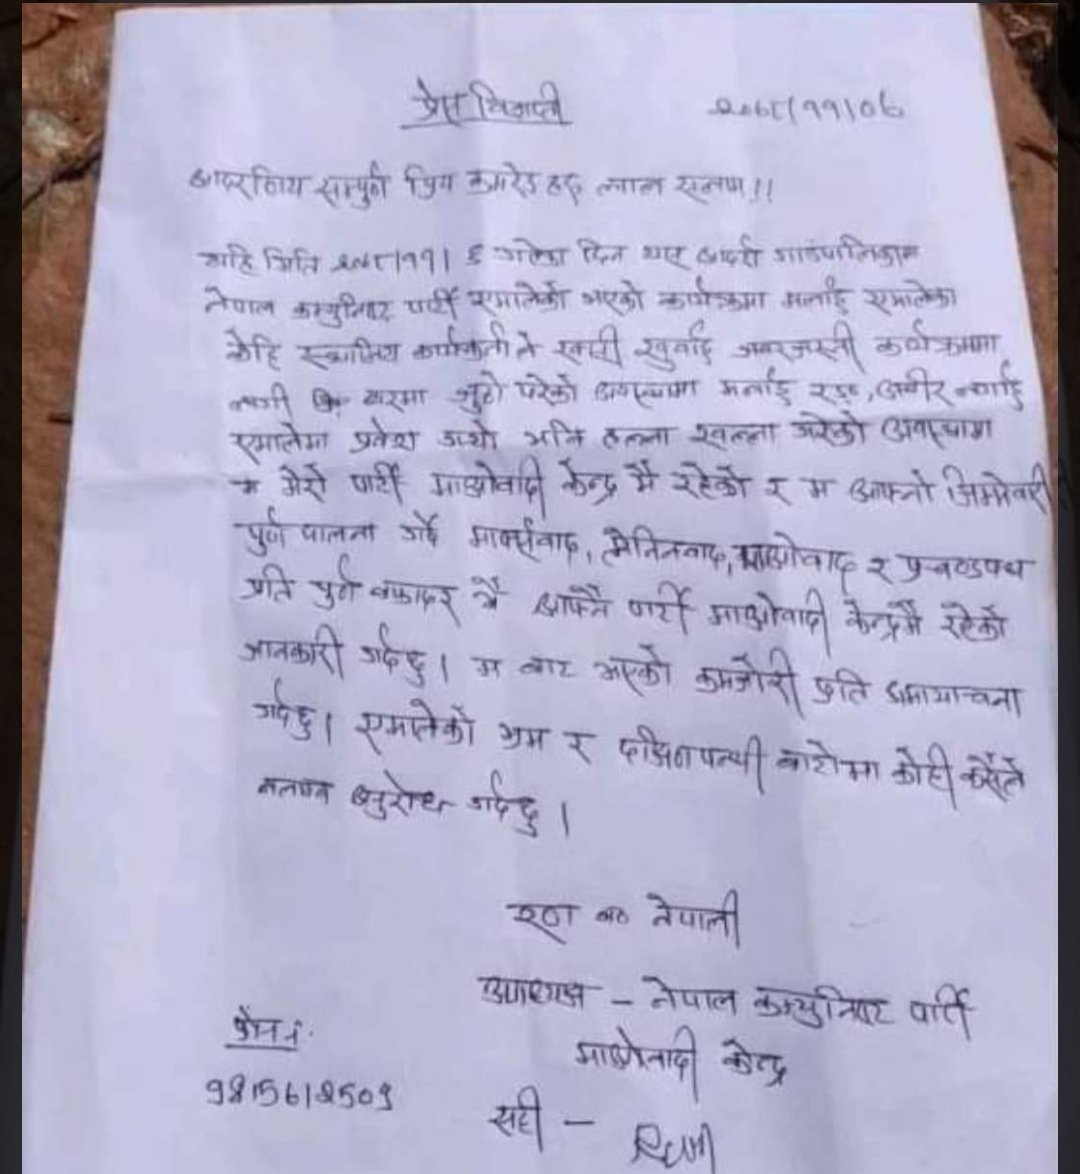 प्रेस विज्ञप्ती २०७८/११/०६
आदरणिय सम्पुर्ण प्रिय कमरेड हरु लाल सलाम!!
यहि मिति २०७८/११/ ६ गतेका दिन आदर्श गाउंपालिकाम
नेपाल कम्युनिष्ट पार्टी एमालेको भएको कार्यक्रममा मलाई एमालेका
केहि स्थानिय कार्यकर्ता ले रक्सी खुवाई जबरजस्ती कार्यक्रममा
लगी घरमा जुठो परेको अवस्थामा मलाई रङ्ग, अबीर लगाई
एमालेमा प्रवेश गर्यो भनि हल्ला खल्ला गरेको अवस्थामा
म मेरो पार्टी माओवादी केन्द्र मै रहेको र म आफ्नो जिम्मेवारी
पुर्ण पालना गर्दै मार्क्सवाद, लेनिनवाद, माओवाद र प्रचण्डपथ
प्रति पुर्ण वफादार भै आफ्नै पार्टी माओवादी केन्द्रमै रहेको
जानकारी गर्दछु। म बाट भएको कमजोरी प्रति क्षमायाचना
गर्दछु। एमालेको भ्रम र दक्षिणपन्थी बाटोमा कोही कसैले
नलाग्न अनुरोध गर्दछु।
नेपाली
अध्यक्ष - नेपाल कम्युनिष्ट पार्टी
माओवादी केन्द्र
फोन नं.
9815612509
सही -